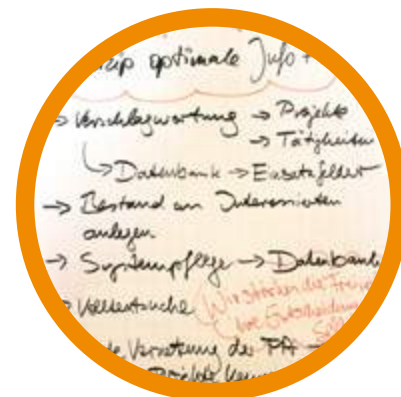 optimale Info +
-> Verschlagwortung -> Projekte
-> Tätigkeiten
Datenbank -> Einsatzfelder
-> Bestand an Interessierten
anlegen
-> Systempflege -> Datenbank
> Volltextsuche
Wir stärken die
Vernetzung der PA
Projekte